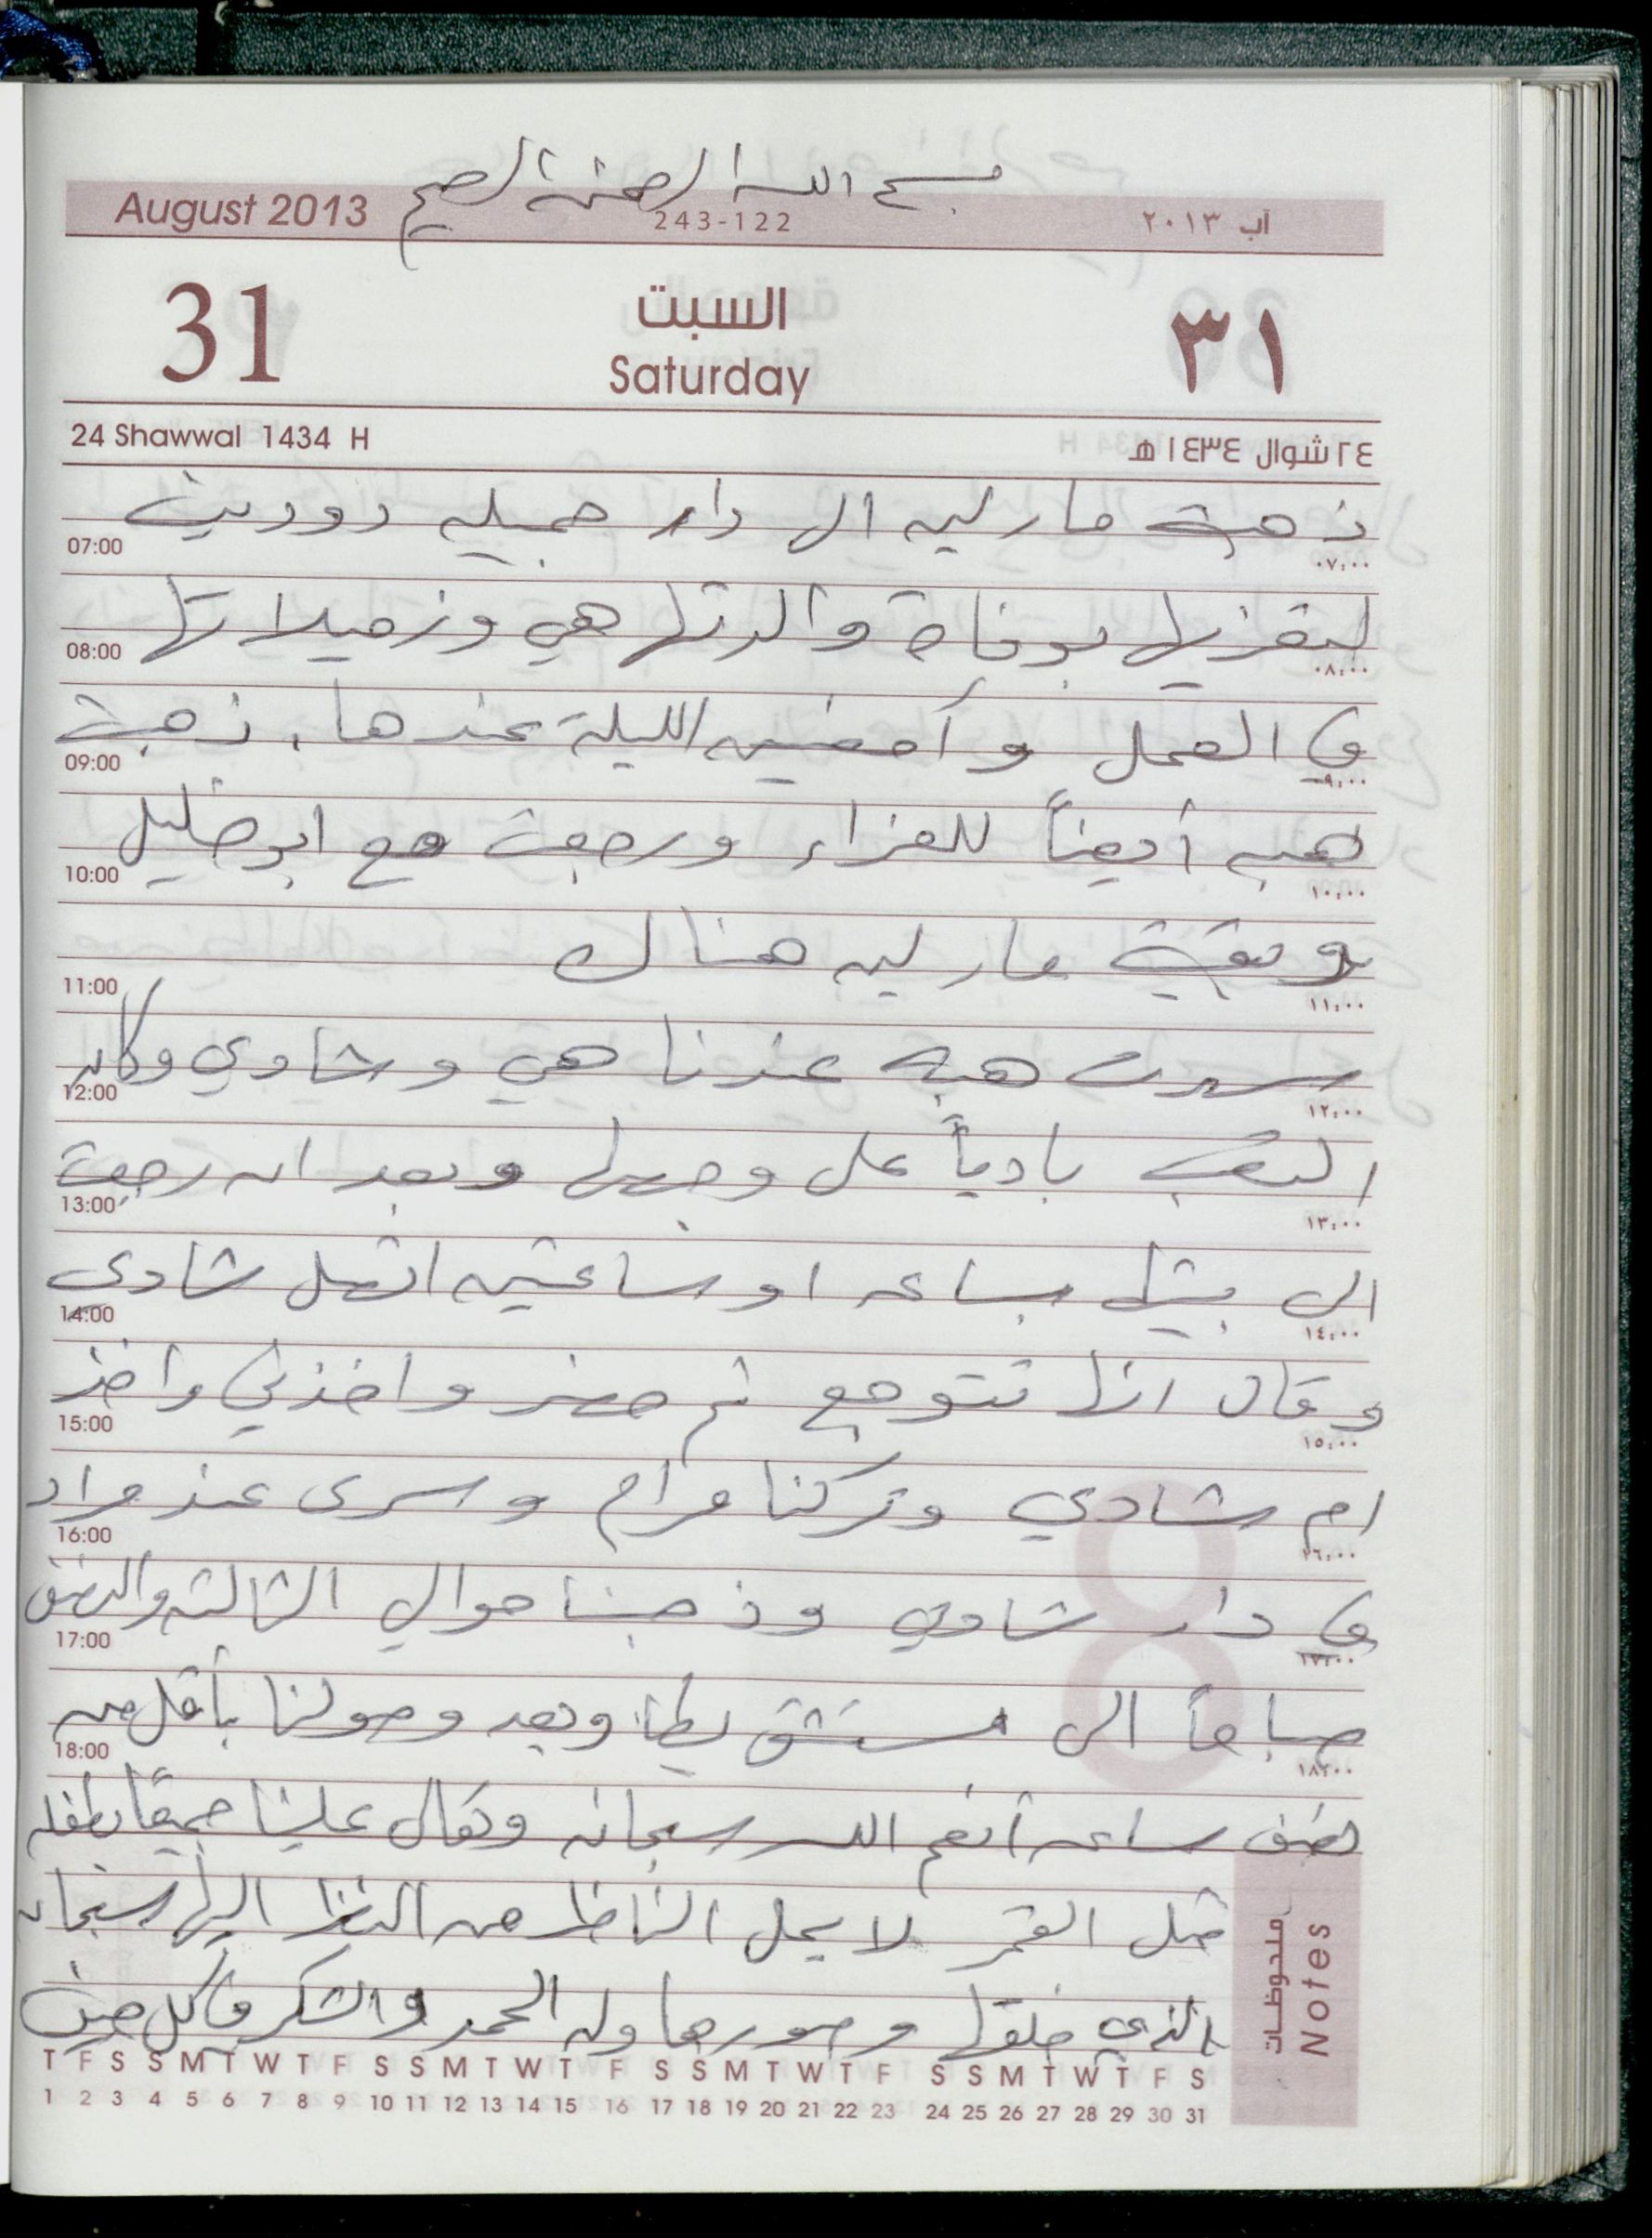 بسم الله الرحمن الرحيم
August 2013 243-122 آب ٢٠١٣
31 السبت ٣١
Saturday
24 Shawwal 1434 H ٢٤ شوال ١٤٣٤ هـ
ذهبت مارلين الى دار جميله دوودين
07:00 ٠٧:٠٠
لتعزيها بوفاة والدتها هي وزميلاتها
08:00 ٠٨:٠٠
في العمل وأمضين الليلة عندها. ذهبت
09:00 ٠٩:٠٠
هبه أيضاً للعزاء ورجعت مع ابو خليل
10:00 ١٠:٠٠
وبقيت مارلين هناك
11:00 ١١:٠٠
سهرت هبه عندنا هي وشادي وكان
12:00 ١٢:٠٠
التعب بادياً على وجهها وبعد ان رجعت
13:00 ١٣:٠٠
الى بيتها بساعه او ساعتين اتصل شادي
14:00 ١٤:٠٠
وقال انها تتوجع ثم حضر واخذني واخذ
15:00 ١٥:٠٠
ام شادي وتركنا مرام وسرى عند مراد
16:00 ١٦:٠٠
في دار شادي وذهبنا حوالي الثالثه والنصف
17:00 ١٧:٠٠
صباحاً الى مستشفى يطا وبعد وصولنا بأقل من
18:00 ١٨:٠٠
نصف ساعه أنعم الله سبحانه وتعالى علينا جميعًا بطفله
مثل القمر لا يمل الناظر من النظر اليها سبحان
الذي خلقها وصورها وله الحمد والشكر في كل حين
ملحوظات
Notes
T F S S M T W T F S S M T W T F S S M T W T F S S M T W T F S
1 2 3 4 5 6 7 8 9 10 11 12 13 14 15 16 17 18 19 20 21 22 23 24 25 26 27 28 29 30 31